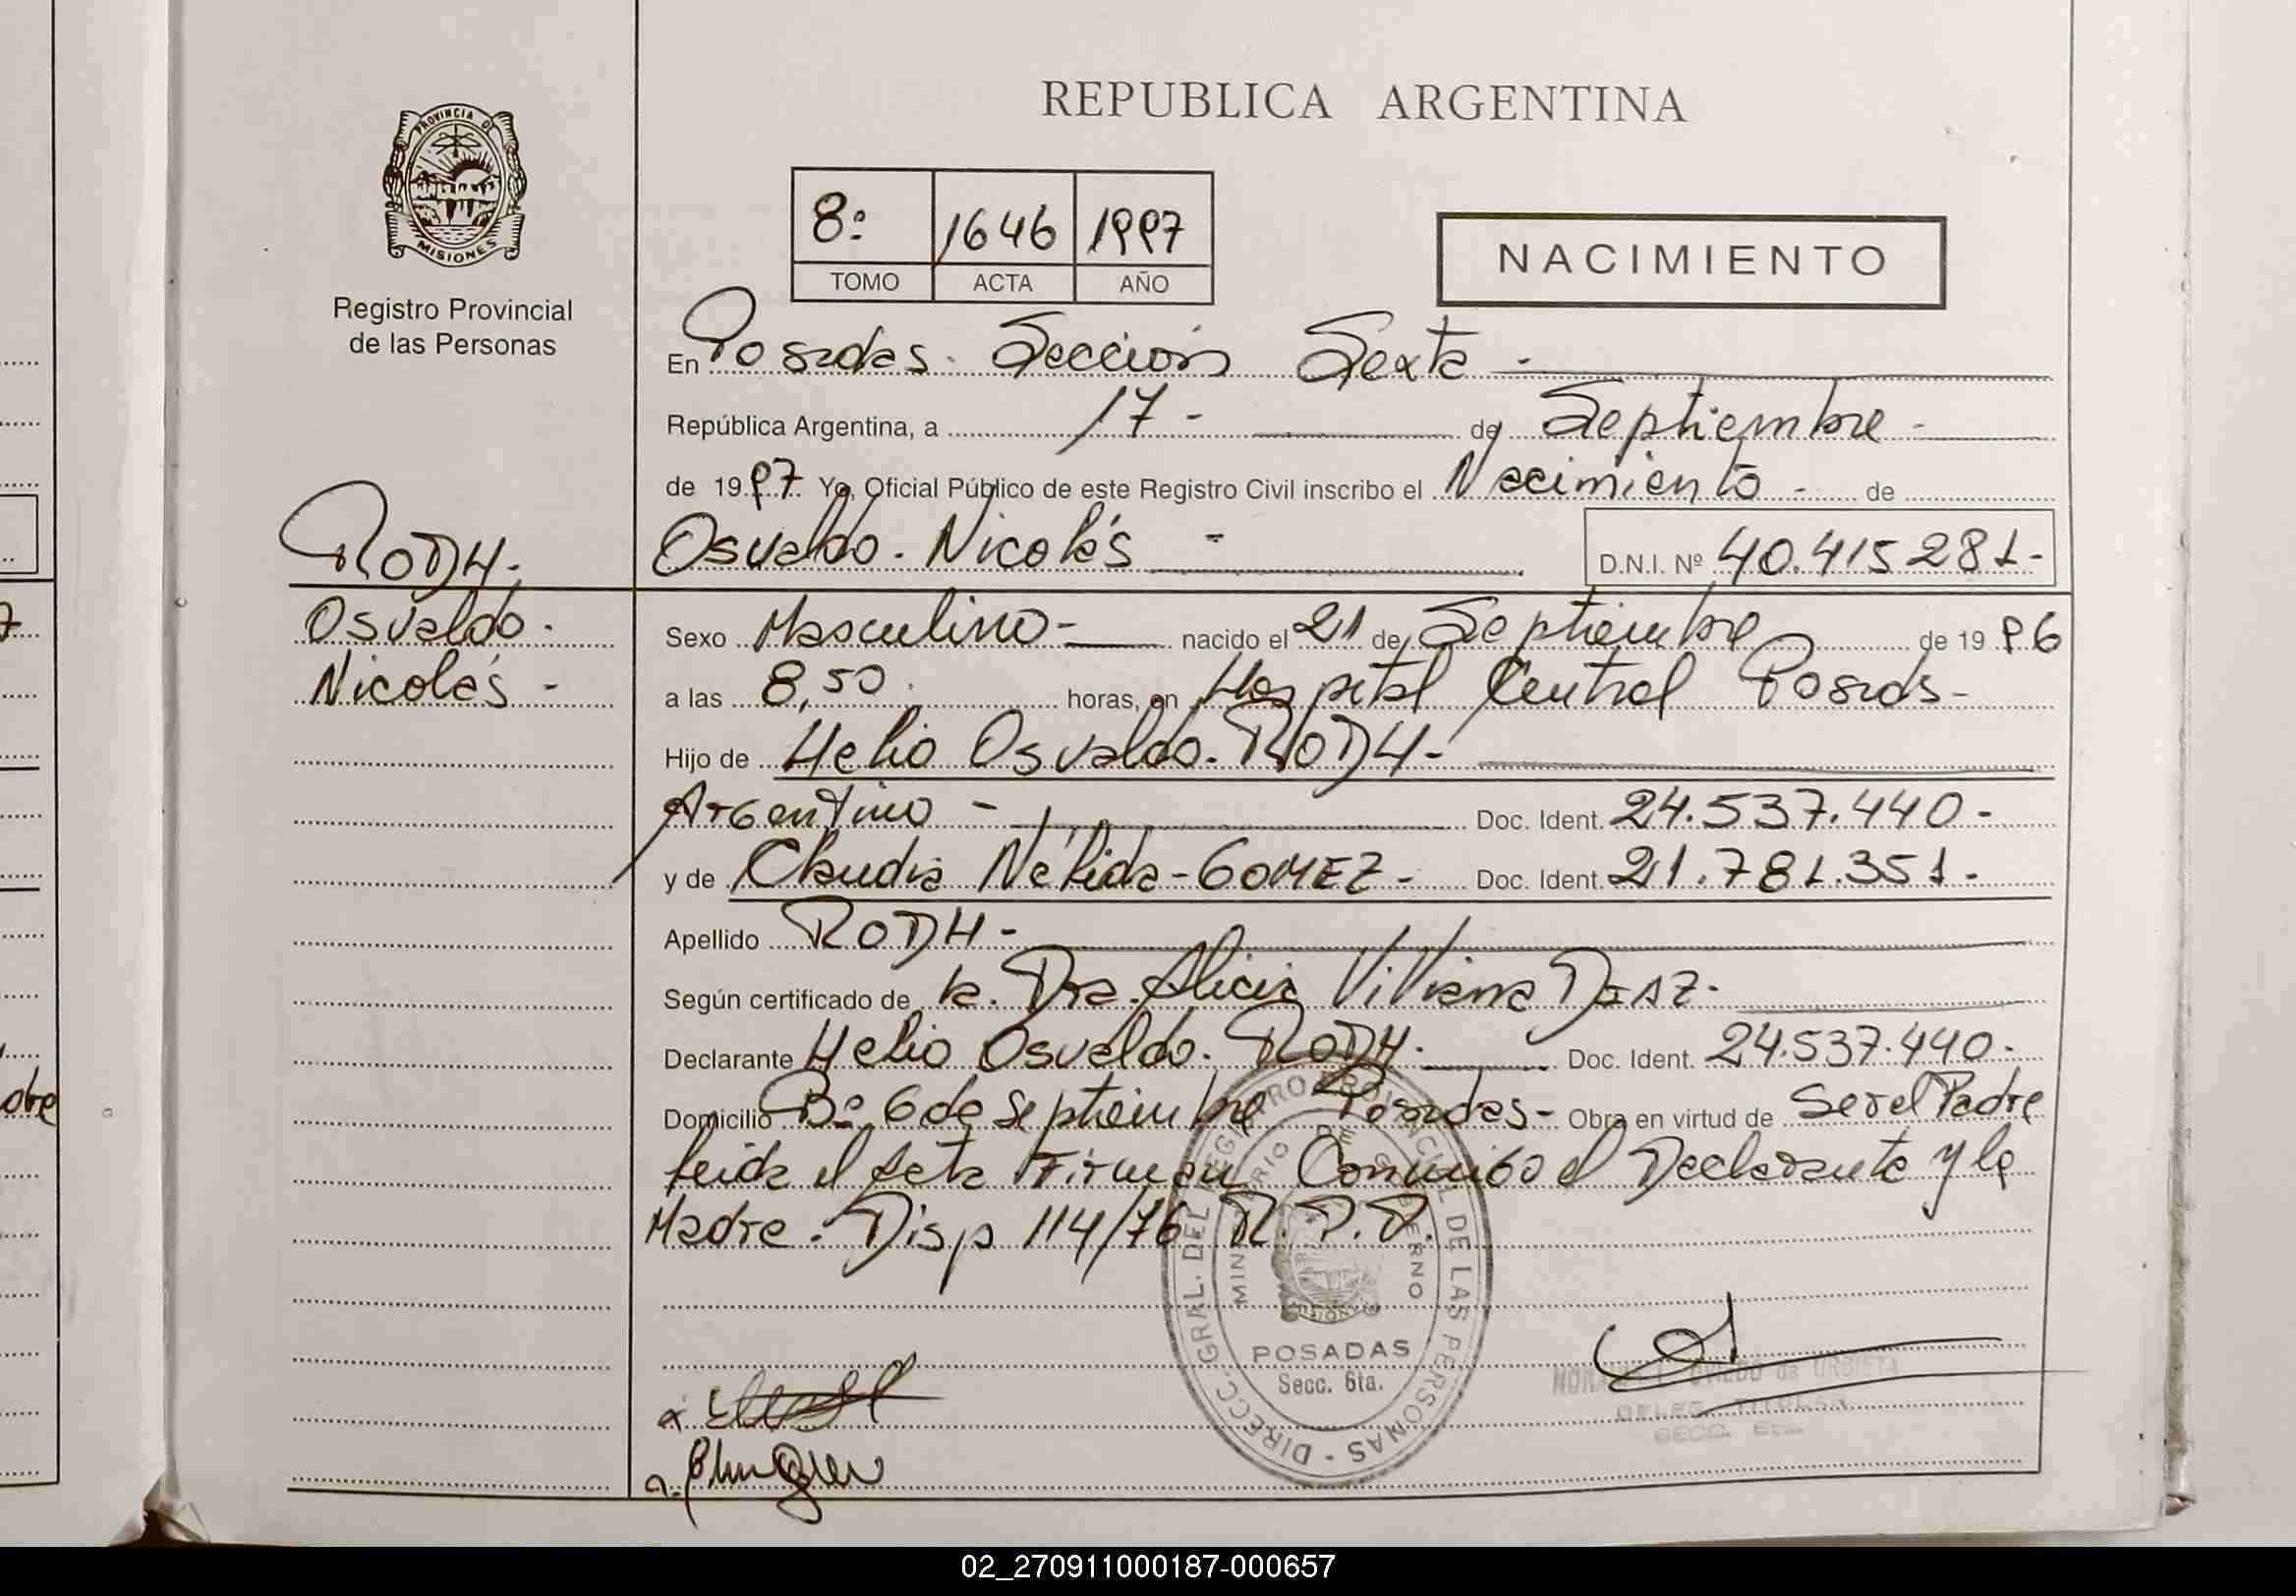 REPUBLICA ARGENTINA
PROVINCIA DE
MISIONES
Registro Provincial
de las Personas
8º 1646 1997
TOMO ACTA AÑO
NACIMIENTO
En Posadas. Sección Sexta -
República Argentina, a 17 - de Septiembre -
de 1997 Yo, Oficial Público de este Registro Civil inscribo el Nacimiento - de
Osvaldo. Nicolás - D.N.I. Nº 40.415 281-
RODH.
Osvaldo.
Nicolás -
Sexo Masculino - nacido el 21 de Septiembre de 1996
a las 8,50. horas, en Hospital Central Posads-
Hijo de Helio Osvaldo. RODH-
Argentino - Doc. Ident. 24.537.440-
y de Claudia Nélida - GOMEZ - Doc. Ident. 21.781.351-
Apellido RODH -
Según certificado de la. Dra. Alicia Viviana DIAZ-
Declarante Helio Osvaldo. RODH. Doc. Ident. 24.537.440-
Domicilio Bº 6 de Septiembre Posadas- Obra en virtud de Ser el Padre
leida el Acta Firman Conmigo el Declarante y la
Madre. Disp 114/76 R.P.P.
DIRECC. GRAL. DEL REGISTRO PROVINCIAL DE LAS PERSONAS
MINISTERIO DE GOBIERNO
MISIONES
POSADAS
Secc. 6ta.
OVIEDO de URBIETA
DELEG. TITULAR
SECC. 6ta.
7
dre
02_270911000187-000657